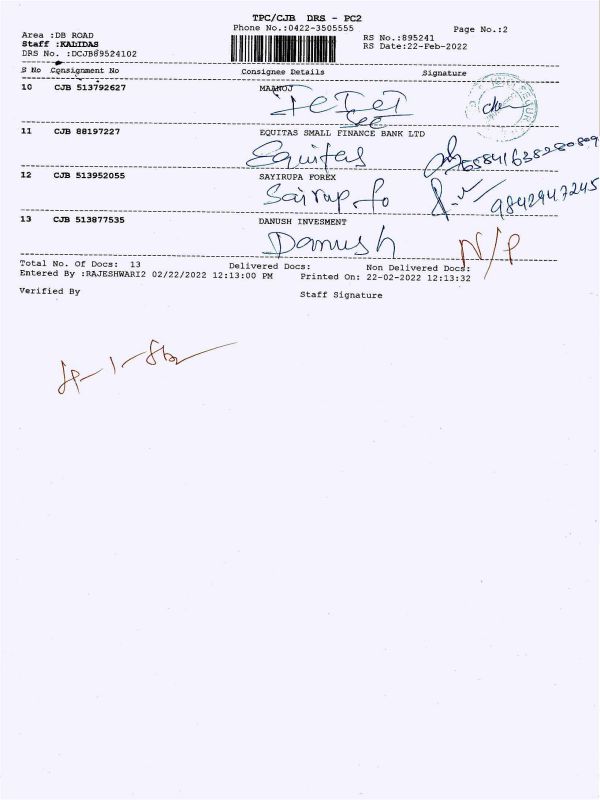 TPC/CJB DRS - PC2
Phone No.:0422-3505555
Page No.:2
Area :DB ROAD
RS No.:895241
Staff :KALIDAS
RS Date:22-Feb-2022
DRS No. :DCJB89524102
S No Consignment No Consignee Details Signature
10 CJB 513792627 MAANOJ
11 CJB 88197227 EQUITAS SMALL FINANCE BANK LTD
Equitas
12 CJB 513952055 SAYIRUPA FOREX
Sairup fo 9842947245
13 CJB 513877535 DANUSH INVESMENT
Danush N/P
Total No. Of Docs: 13 Delivered Docs: Non Delivered Docs:
Entered By :RAJESHWARI2 02/22/2022 12:13:00 PM Printed On: 22-02-2022 12:13:32
Verified By Staff Signature